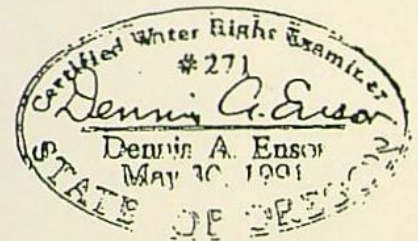 Certified Water Right Examiner
#271
Dennis A. Ensor
Dennis A. Ensor
May 30, 1991
STATE OF OREGON